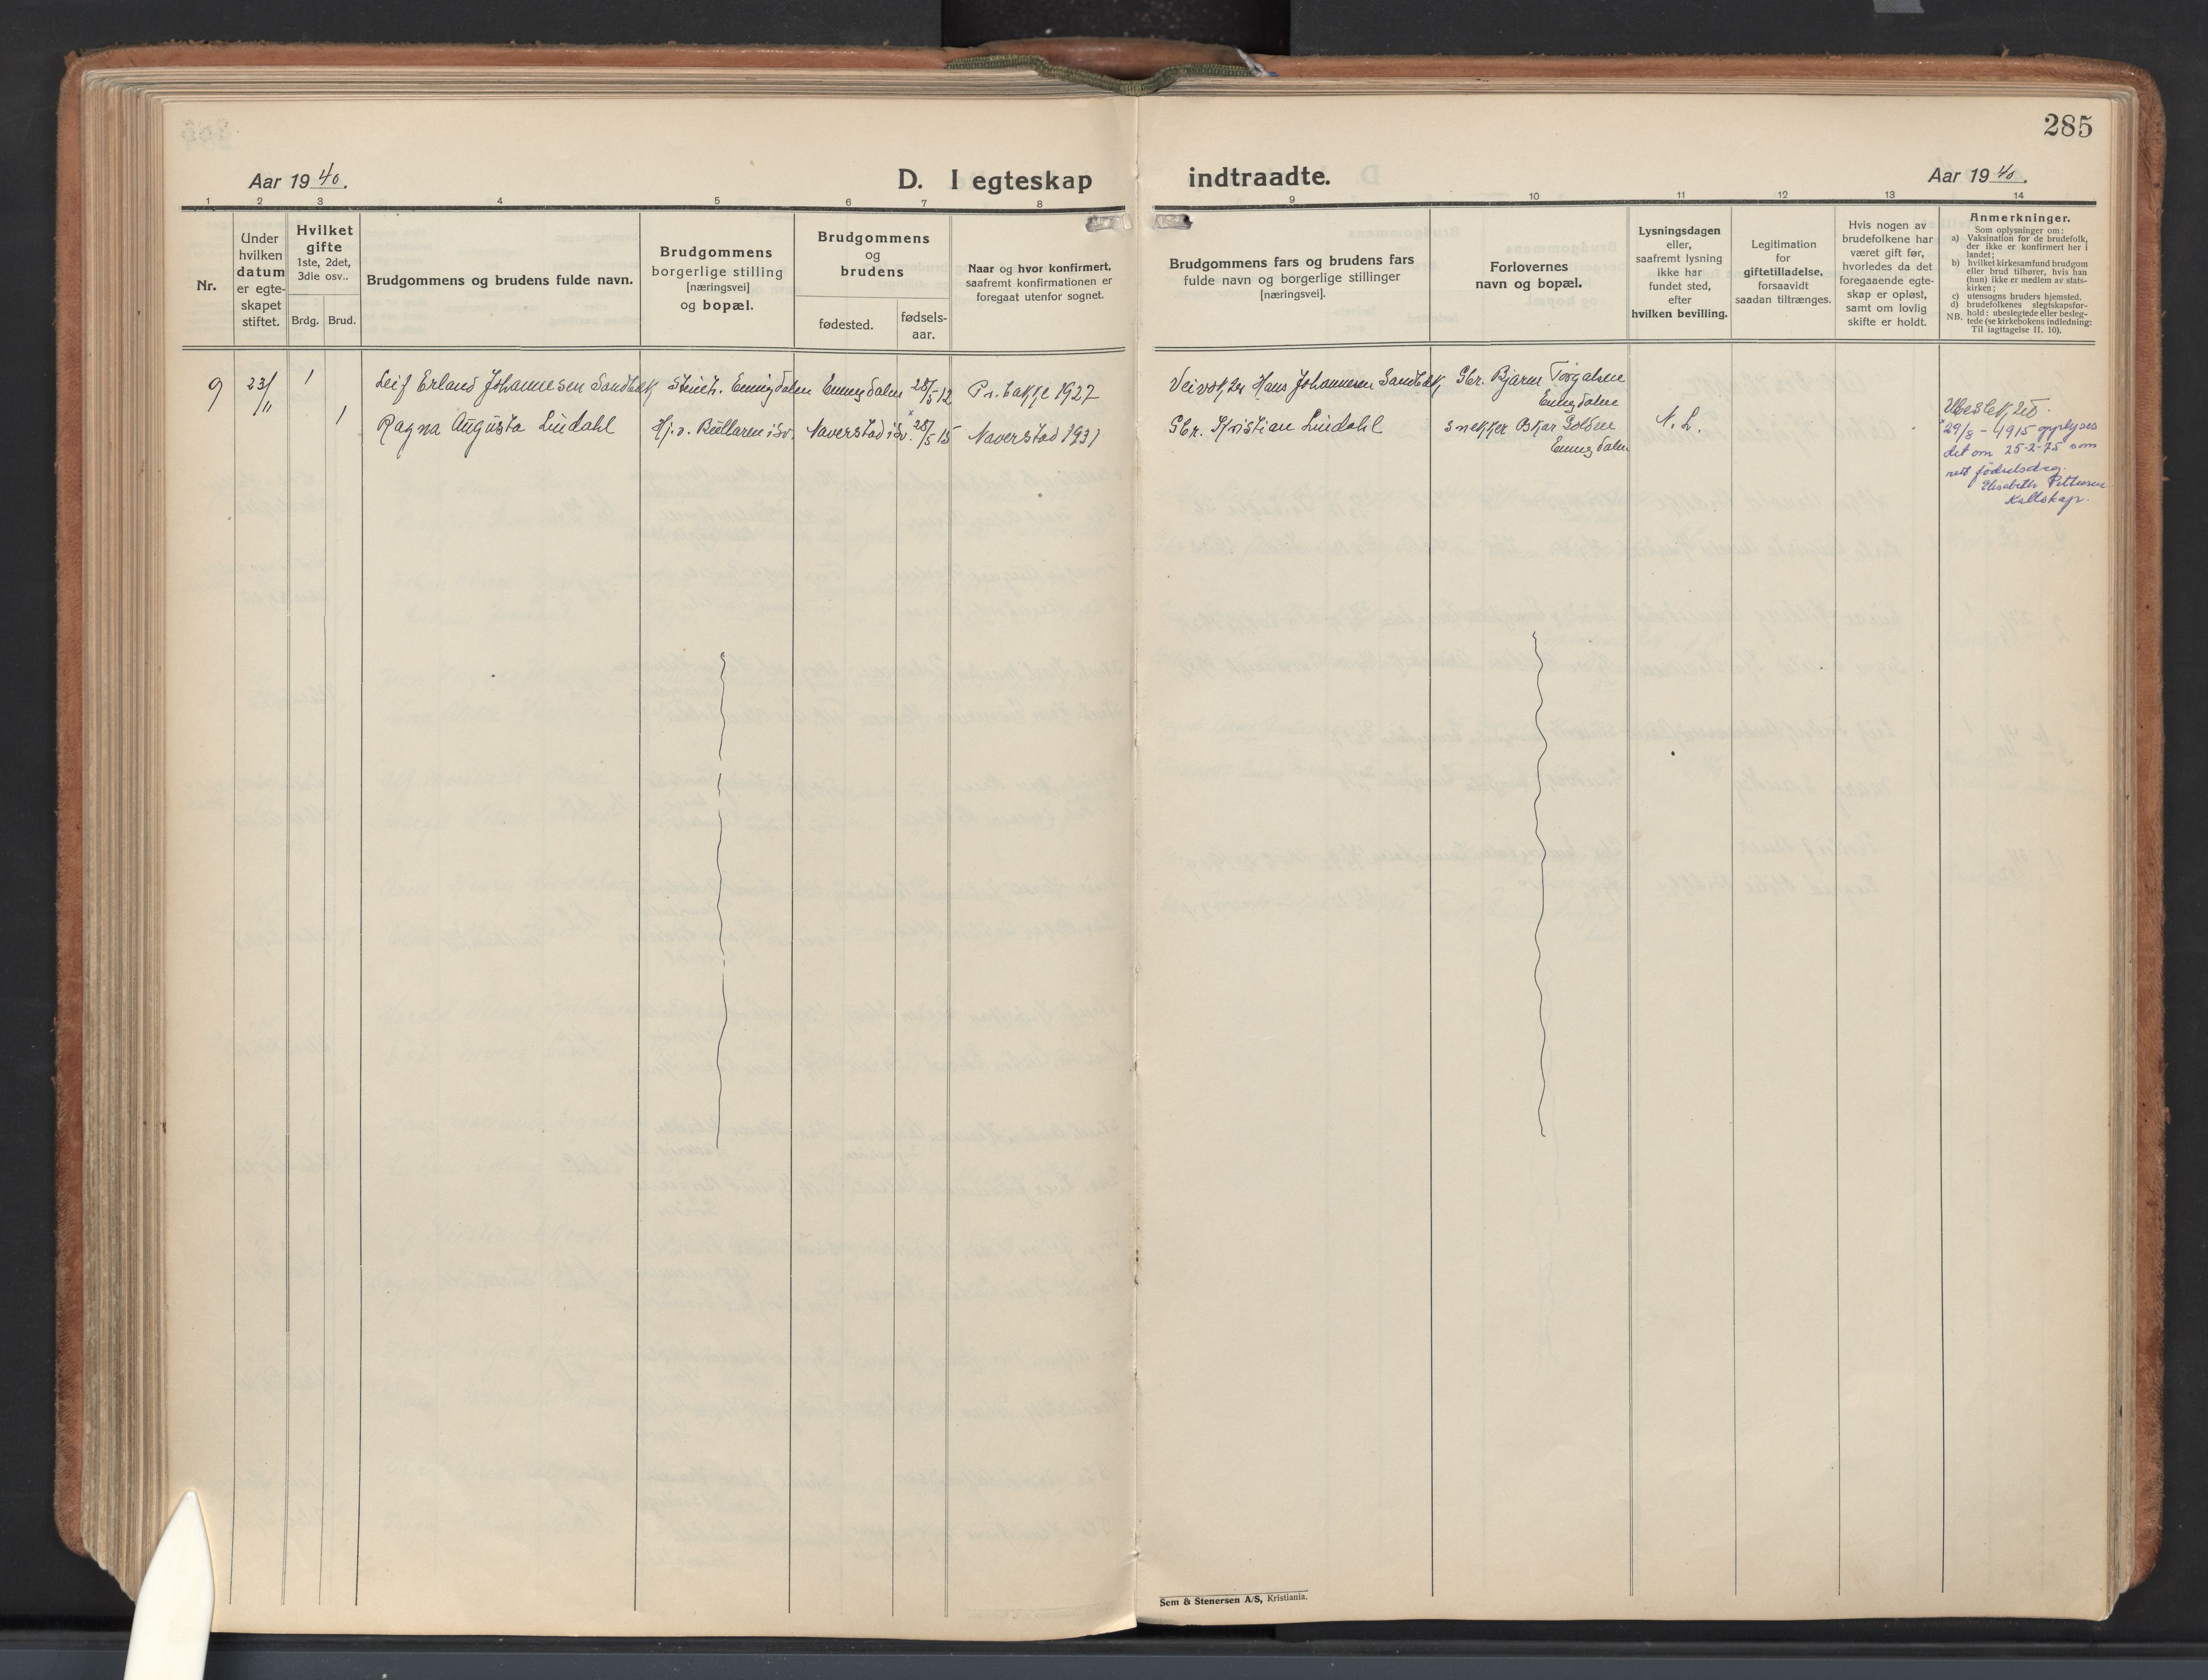 285
Aar 1940.
D. I egteskap
indtraadte.
Aar 1940.
1 2 3 4 5 6 7 8
9 10 11 12 13 14
Nr.
Under hvilken datum er egte-skapet stiftet.
Hvilket gifte
1ste, 2det, 3die osv..
Brdg. Brud.
Brudgommens og brudens fulde navn.
Brudgommens
borgerlige stilling
[næringsvei]
og bopæl.
Brudgommens
og
brudens
fødested.
fødsels-
aar.
Naar og hvor konfirmert,
saafremt konfirmationen er
foregaat utenfor sognet.
Brudgommens fars og brudens fars
fulde navn og borgerlige stillinger
[næringsvei].
Forlovernes
navn og bopæl.
Lysningsdagen
eller,
saafremt lysning
ikke har
fundet sted,
efter
hvilken bevilling.
Legitimation
for
giftetilladelse,
forsaavidt
saadan tiltrænges.
Hvis nogen av
brudefolkene har
været gift før,
hvorledes da det
foregaaende egte-
skap er opløst,
samt om lovlig
skifte er holdt.
Anmerkninger.
Som oplysninger om:
a) Vaksination for de brudefolk,
der ikke er konfirmert her i
landet;
b) hvilket kirkesamfund brudgom
eller brud tilhører, hvis han
(hun) ikke er medlem av stats-
kirken;
c) utensogns bruders hjemsted.
d) brudefolkenes slegtskapsfor-
hold: ubeslegtede eller besleg-
NB. tede (se kirkebokens indledning:
Til iagttagelse II. 10).
9 23/11 1 Leif Erland Johannesen Sandbæk Stenh. Enningdalen Enningdalen 28/5-12 Pr. bakke 1927
1 Ragna Augusta Lindahl Hj.v. Bullaren i Sv. Naverstad i Sv. x 28/5 15 Naverstad 1931
Veivokter Hans Johannesen Sandbæk Gbr. Bjarne Torgalsen
Enningdalen
Gbr. Kristian Lindahl snekker Oskar Golden
Enningdalen
N. L.
Ubeslektet.
x 29/8 - 1915 opplyses
det om 25-2-75 som
rett fødselsdag.
Elisabeth Pettersen
Kallskap.
Sem & Stenersen A/S, Kristiania.